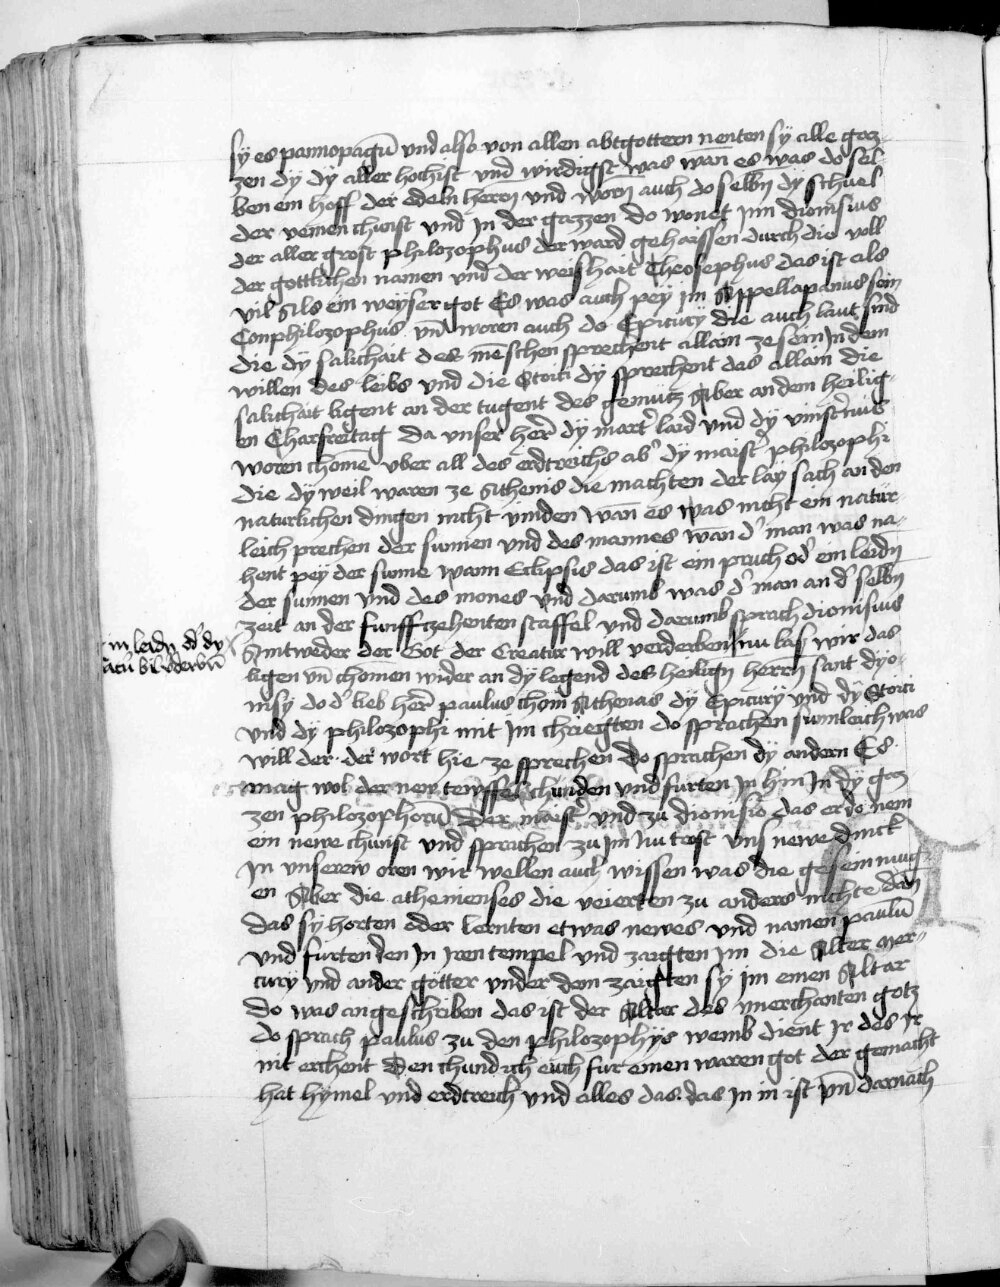 sy es pannopagū vnd also von allen abtgottern nenten sy alle gaz-
zen dÿ dÿ aller hochist vnd wirdigist was wan es was do sel-
ben ein hoff der edeln herrn vnd worn auch do selbn dy schuel
der veinen chunst vnd jn der gazzen do wonet jnn dionisius
der aller grost philozophus der ward gehaissen durch die voll
der gottlichen namen vnd der weishait Theosephus das ist als
vil als ein weyser got Es was auch pey im Appellapanus sein
Conphilozophus vnd woren auch do Epicury die auch laut sind
die dÿ salichait des mēschen sprechent allain ze sein jn dem
willen des leibs vnd die Stoici dÿ sprechent das allain die
salichait ligent an der tugent des gemutz Aber an dem heilig-
en Charfreitag da vnser her̄ dy mart̓ laid vnd dy vinst̓nus
woren chomē vber all des erdtreichs ab̓ dy maist̓ philozophi
die dÿ weil waren ze Athenis die machten der lay sach an den
naturlichen dingen nicht vinden wan es was nicht ein natur-
leich prechen der sunnen vnd des mannes wan d̓ man was na-
hent pey der sunne wann Eclipsis das ist ein pruch od̓ ein leidn̄
der sunnen vnd des mones vnd darumb was d̓ man an d̓ selbn̄
zeit an der funfftzehenten staffel vnd darumb sprach dionisius
Aintweder der Got der Creatur will verderben nu las wir das
ligen vn̄ chomen wider an dy legend des heilign̄ herrn sant dyo-
nisy do d̓ lieb her̄ paulus chom Athenas dÿ Epicury vnd dÿ Stoici
vnd dÿ philozophi mit jm chriegten do sprachen sumleich was
will der · der wort hie ze sprechen do sprachen dÿ andern Es
mag wol der new tewffel chunden vnd furten jn hin jn dÿ gaz-
zen philozophorū Der maist̓ vnd zu dionisio das er do nem
ein newe chunst vnd sprachen zu jm nu test vns newe dinck
jn vnserew oren wir wellen auch wissen was die gesein mug-
en Aber die athenienses die veierten zu anders nichte dan
das sy horten oder lernten etwas newes vnd namen paulū
vnd furten den jn jren tempel vnd zaigten jm die Alter mer-
cury vnd ander gotter vnder dem zaigten sy jm einen Altar
do was angeschriben das ist der Altar des vnerchanten gotz
do sprach paulus zu den philozophys wemb dient jr des jr
nit erchent Den chund ich euch fur einen waren got der gemacht
hat hymel vnd erdtreich vnd alles das das jn in ist vn̄ darnach